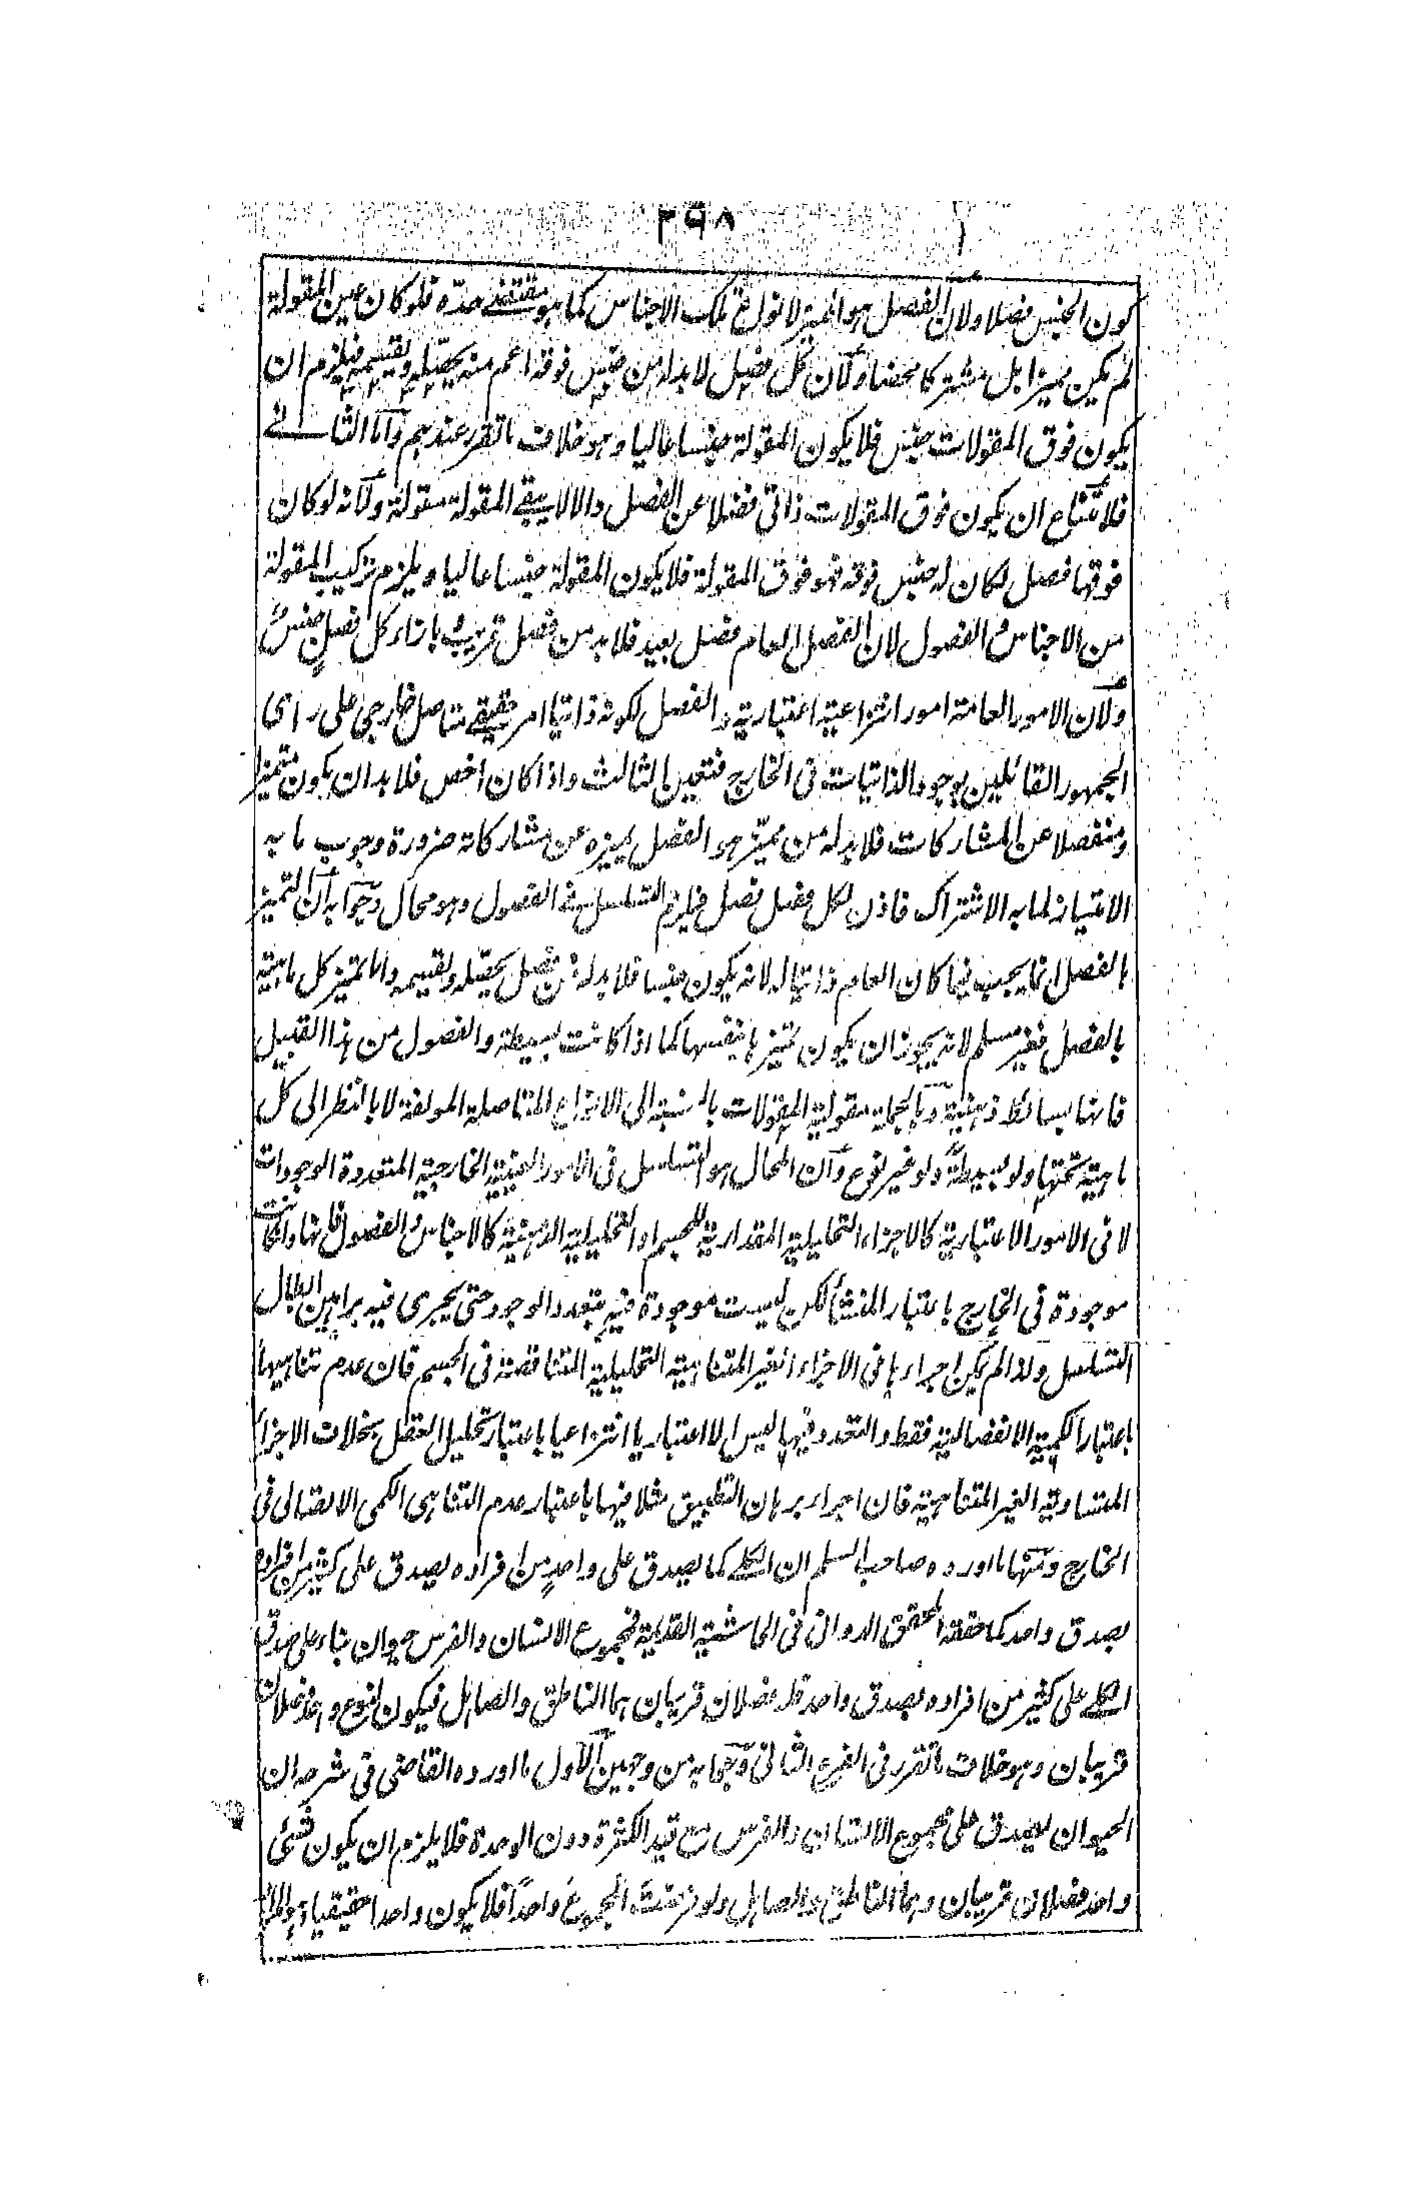 ٢٩٨
كون الجنس فصلا ولان الفصل هو المميز لانواع تلك الاجناس كما هو مقتضى حده فلو كان عين المقولة
لم يكن مميزا بل مشتركا محضا ولان كل فصل لا بد له من جنس فوقه اعم منه يحصله ويقسمه فيلزم ان
يكون فوق المقولات جنس فلا يكون المقولة جنسا عاليا وهو خلاف ما تقرر عندهم واما الثانى
فلامتناع ان يكون فوق المقولات ذاتى فضلا عن الفصل والا لا يبقى المقولة مقولة ولانه لو كان
فوقها فصل لكان له جنس فوقه فهو فوق المقولة فلا يكون المقولة جنسا عاليا ويلزم تركيب المقولة
من الاجناس والفصول لان الفصل العام فصل بعيد فلا بد من فصل قريب وبازاء كل فصلٍ جنسٌ
ولان الامور العامة امور انتزاعية اعتبارية والفصل لكونه ذاتيا امر حقيقى متاصل خارجى على راى
الجمهور القائلين بوجود الذاتيات فى الخارج فتعين الثالث واذا كان اخص فلا بد ان يكون متميزا
ومنفصلا عن المشاركات فلا بد له من مميز هو الفصل يميزه عن مشاركاته ضرورة وجوب ما به
الامتياز لما به الاشتراك فاذن لكل فصل فصل فيلزم التسلسل فى الفصول وهو محال وجوابه ان التميز
بالفصل انما يجب فيما كان العام ذاتيا له لانه يكون جنسا فلا بد له من فصل يحصله ويقسمه واما تميز كل ماهية
بالفصل فغير مسلم لانه يجوز ان يكون تميزها بنفسها كما اذا كانت بسيطة والفصول من هذا القبيل
فانها بسائط ذهنية وبالجملة مقولية المقولات بالنسبة الى الانواع المتاصلة المولفة لا بالنظر الى كل
ماهية تحتها ولو بسيطة ولو غير نوع وان المحال هو التسلسل فى الامور العينية الخارجية المتعددة الوجودات
لا فى الامور الاعتبارية كالاجزاء التحليلية المقدارية للجسم او التحليلية الذهنية كالاجناس والفصول فانها وان كانت
موجودة فى الخارج باعتبار المنشأ لكن ليست موجودة فيه بتعدد الوجود حتى يجرى فيه براهين ابطال
التسلسل ولذا لم يكن اجراءها فى الاجزاء الغير المتناهية التحليلية المتناقصة فى الجسم فان عدم تناهيها
باعتبار الكمية الانفصالية فقط والتعدد فيها ليس الا اعتباريا انتزاعيا باعتبار تحليل العقل بخلاف الاجزاء
المتساوية الغير المتناهية فان اجراء برهان التطبيق مثلا فيها باعتبار عدم التناهى الكمى الاتصالى فى
الخارج ومنها ما اورده صاحب السلم ان الكلى كما يصدق على واحدٍ من افراده يصدق على كثير من افراده
بصدق واحد كما حققه المحقق الدوانى فى الحاشية القديمة فمجموع الانسان والفرس حيوان بناء على صدق
الكلى على كثير من افراده بصدق واحد فله فصلان قريبان هما الناطق والصاهل فيكون لنوع واحد فصلان
قريبان وهو خلاف ما تقرر فى الفرع الثانى وجوابه من وجهين الاول ما اورده القاضى فى شرحه ان
الحيوان يصدق على مجموع الانسان والفرس مع قيد الكثرة دون الوحدة فلا يلزم ان يكون لشئى
واحد فصلان قريبان وهما الناطق والصاهل ولو فرضت المجموع واحداً فلا يكون واحدا حقيقيا